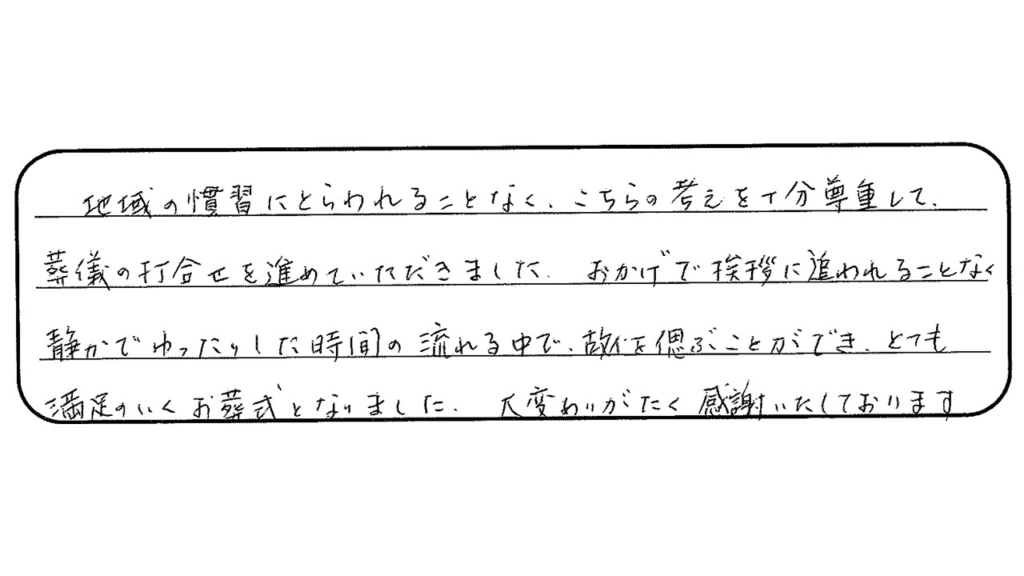 地域の慣習にとらわれることなく、こちらの考えを十分尊重して、
葬儀の打合せを進めていただきました。おかげで挨拶に追われることなく
静かでゆったりした時間の流れる中で、故人を偲ぶことができ、とても
満足のいくお葬式となりました。大変ありがたく感謝いたしております